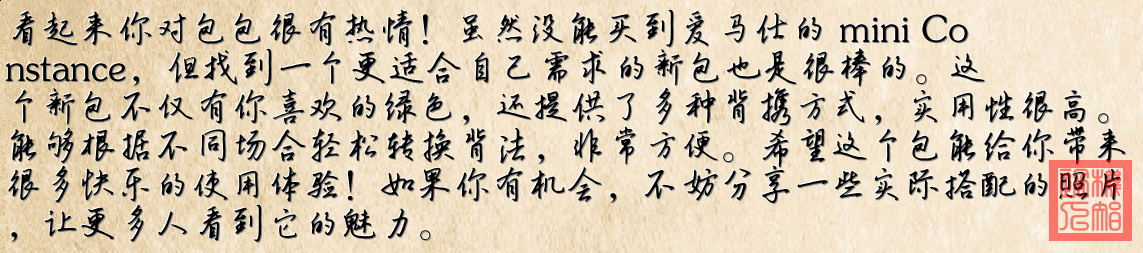 看起来你对包包很有热情！虽然没能买到爱马仕的 mini Co
nstance，但找到一个更适合自己需求的新包也是很棒的。这
个新包不仅有你喜欢的绿色，还提供了多种背携方式，实用性很高。
能够根据不同场合轻松转换背法，非常方便。希望这个包能给你带来
很多快乐的使用体验！如果你有机会，不妨分享一些实际搭配的照片
，让更多人看到它的魅力。